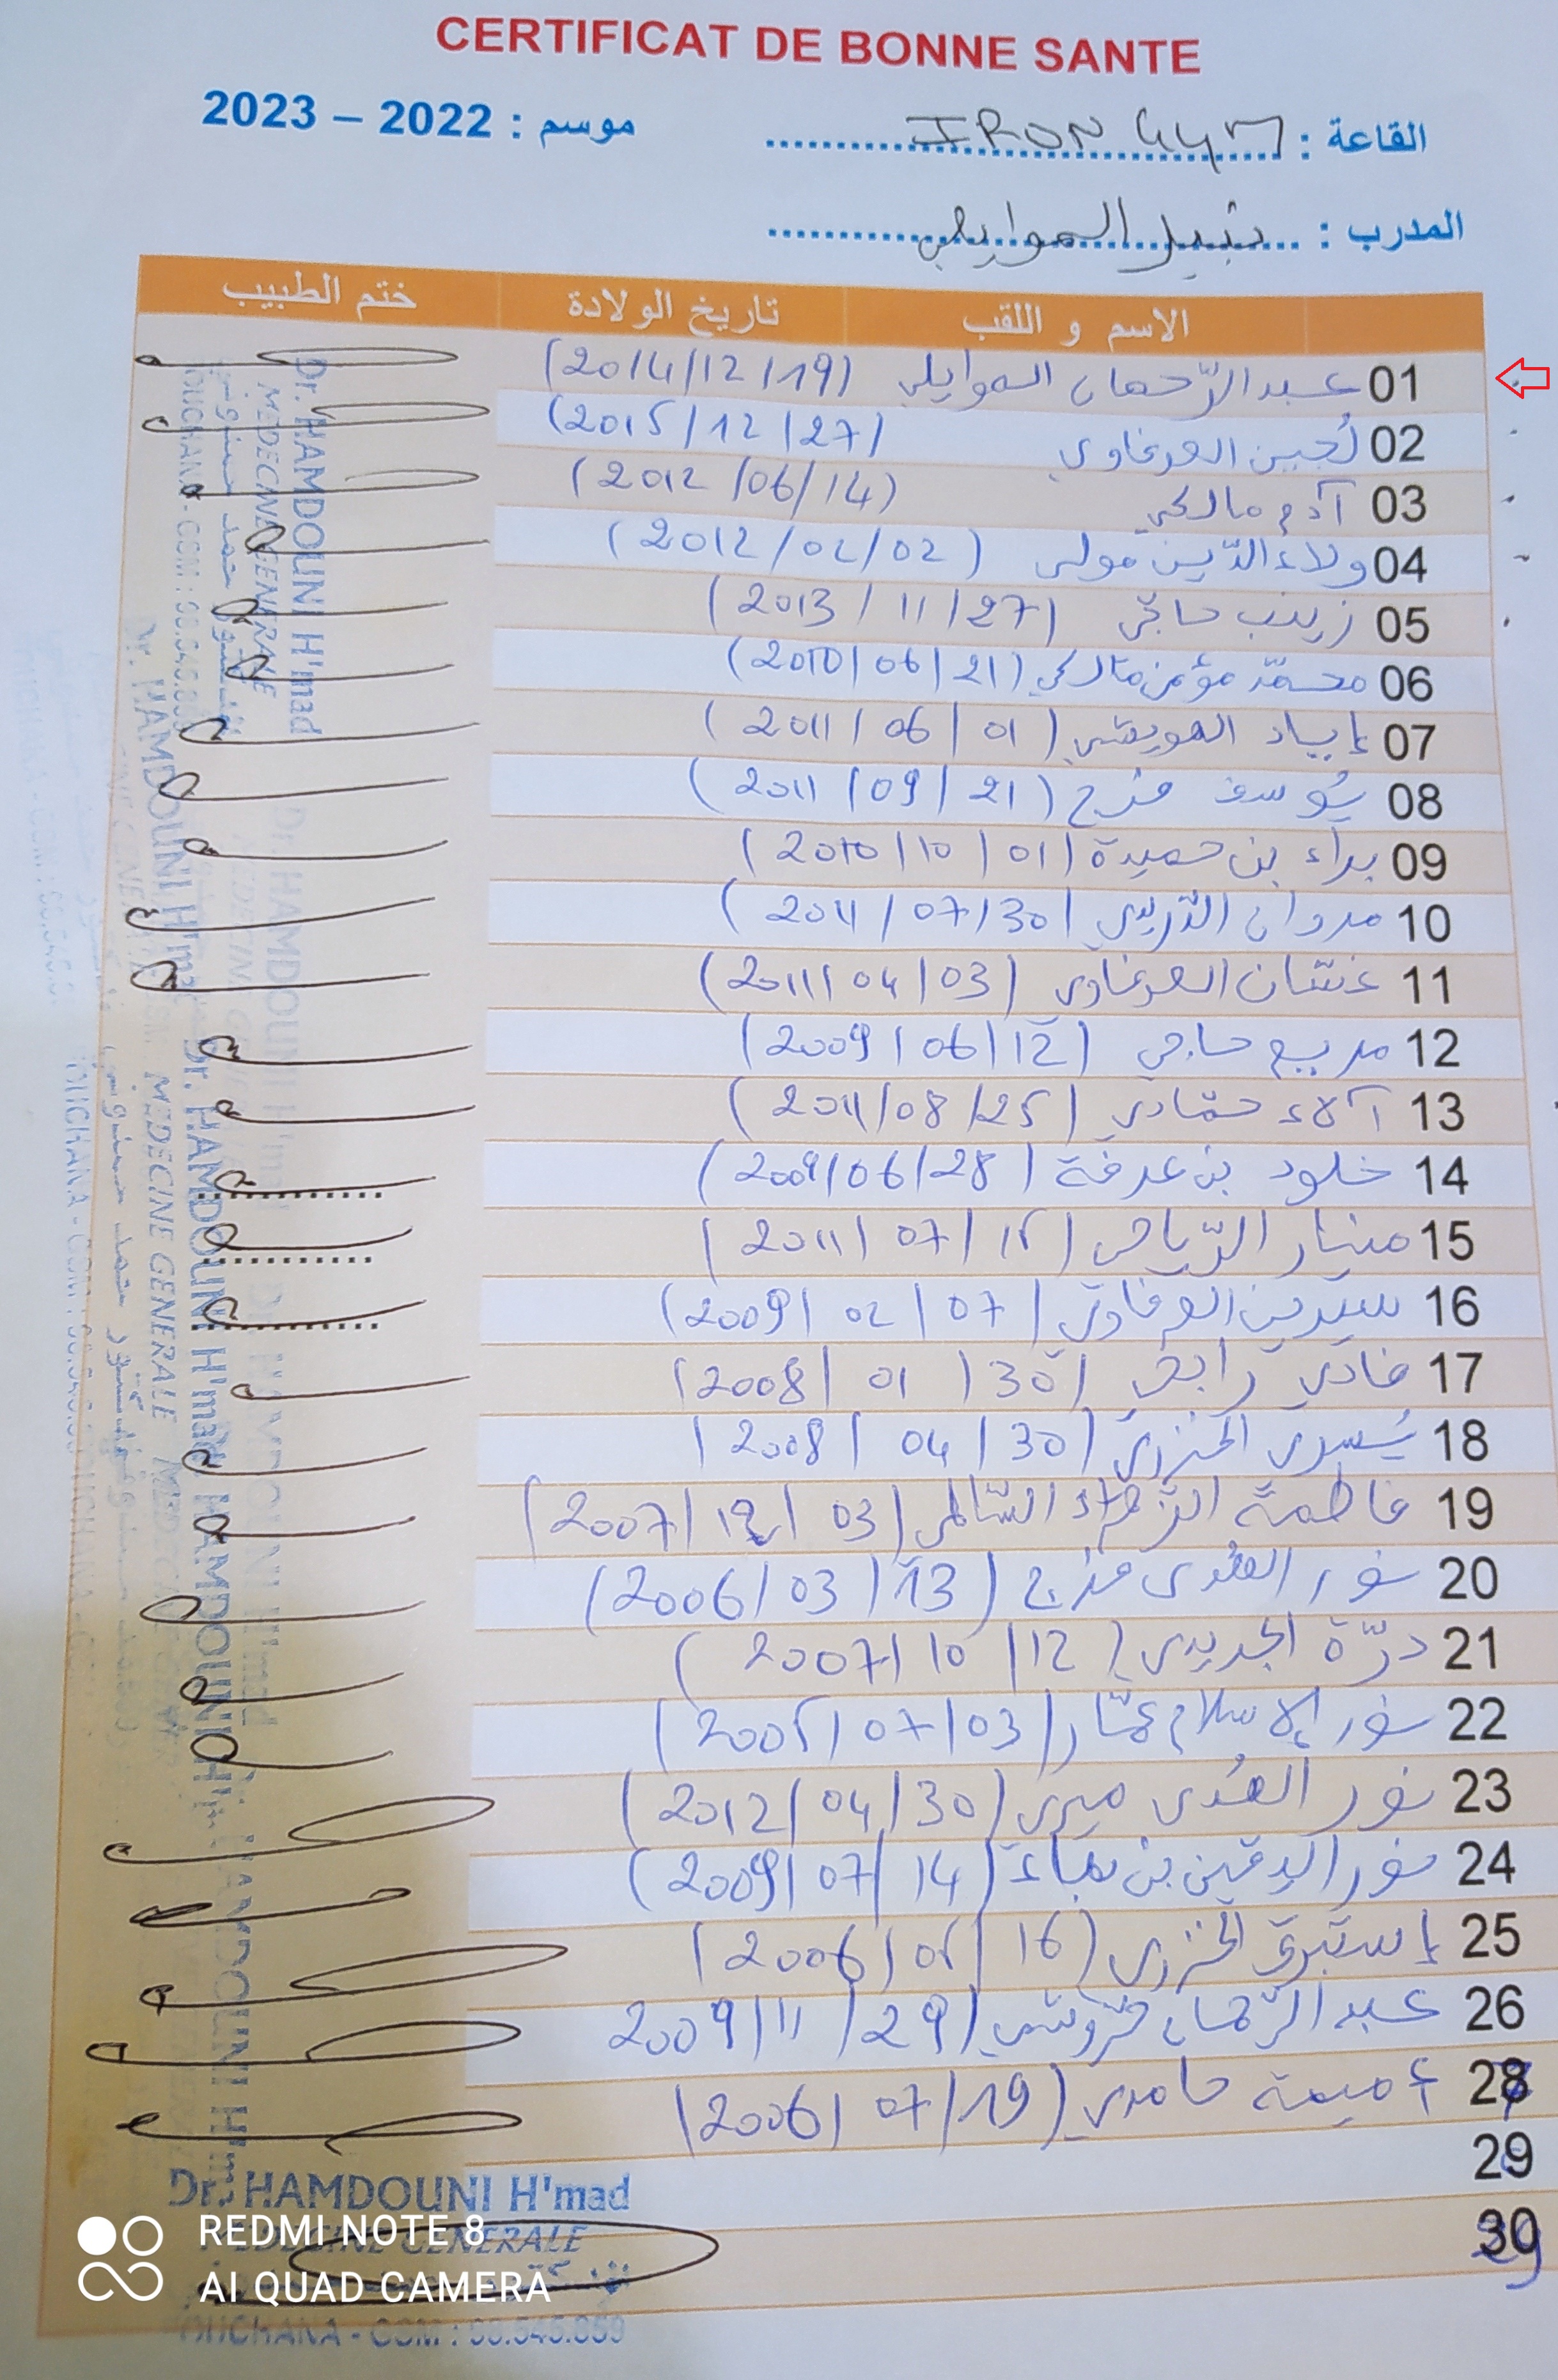 CERTIFICAT DE BONNE SANTE
موسم : 2022 – 2023
القاعة : IRON GYM
المدرب : نبيل الموايلي
الاسم و اللقب تاريخ الولادة ختم الطبيب
01 عبد الرّحمان الموايلي (2014/12/19)
02 لُجين العرفاوي (2015/12/27)
03 آدم مالكي (2012/06/14)
04 ولاء الدّين مولى (2012/02/02)
05 زينب حاجي (2013/11/27)
06 محمّد مؤمن مالكي (2010/06/21)
07 إياد العويشي (2011/06/01)
08 يُوسف فرج (2011/09/21)
09 براء بن حميدة (2010/10/01)
10 مروان الدّريدي (2011/07/30)
11 غسّان العرفاوي (2011/04/03)
12 مريم حاجي (2009/06/12)
13 آلاء حمّادي (2011/08/25)
14 خلود بن عرفة (2009/06/28)
15 منار الرّياحي (2011/07/15)
16 سيرين العرفاوي (2009/02/07)
17 فادي رابحي (2008/01/30)
18 يُسرى الخنزري (2008/04/30)
19 فاطمة الزّهراء السّالمي (2007/12/03)
20 نور الهُدى فرج (2006/03/13)
21 درّة الجديدي (2007/10/12)
22 نور الإسلام عمّار (2005/07/03)
23 نور الهُدى ميري (2012/04/30)
24 نور اليقين بن (2009/07/14)
25 إستبرق الخنزري (2006/05/16)
26 عبد الرّحمان (2009/11/29
28 أميمة حامدي (2006/07/19)
29
30
Dr. HAMDOUNI H'mad
MEDECINE GENERALE
OUCHANA - GSM : 98.545.859
REDMI NOTE 8
AI QUAD CAMERA